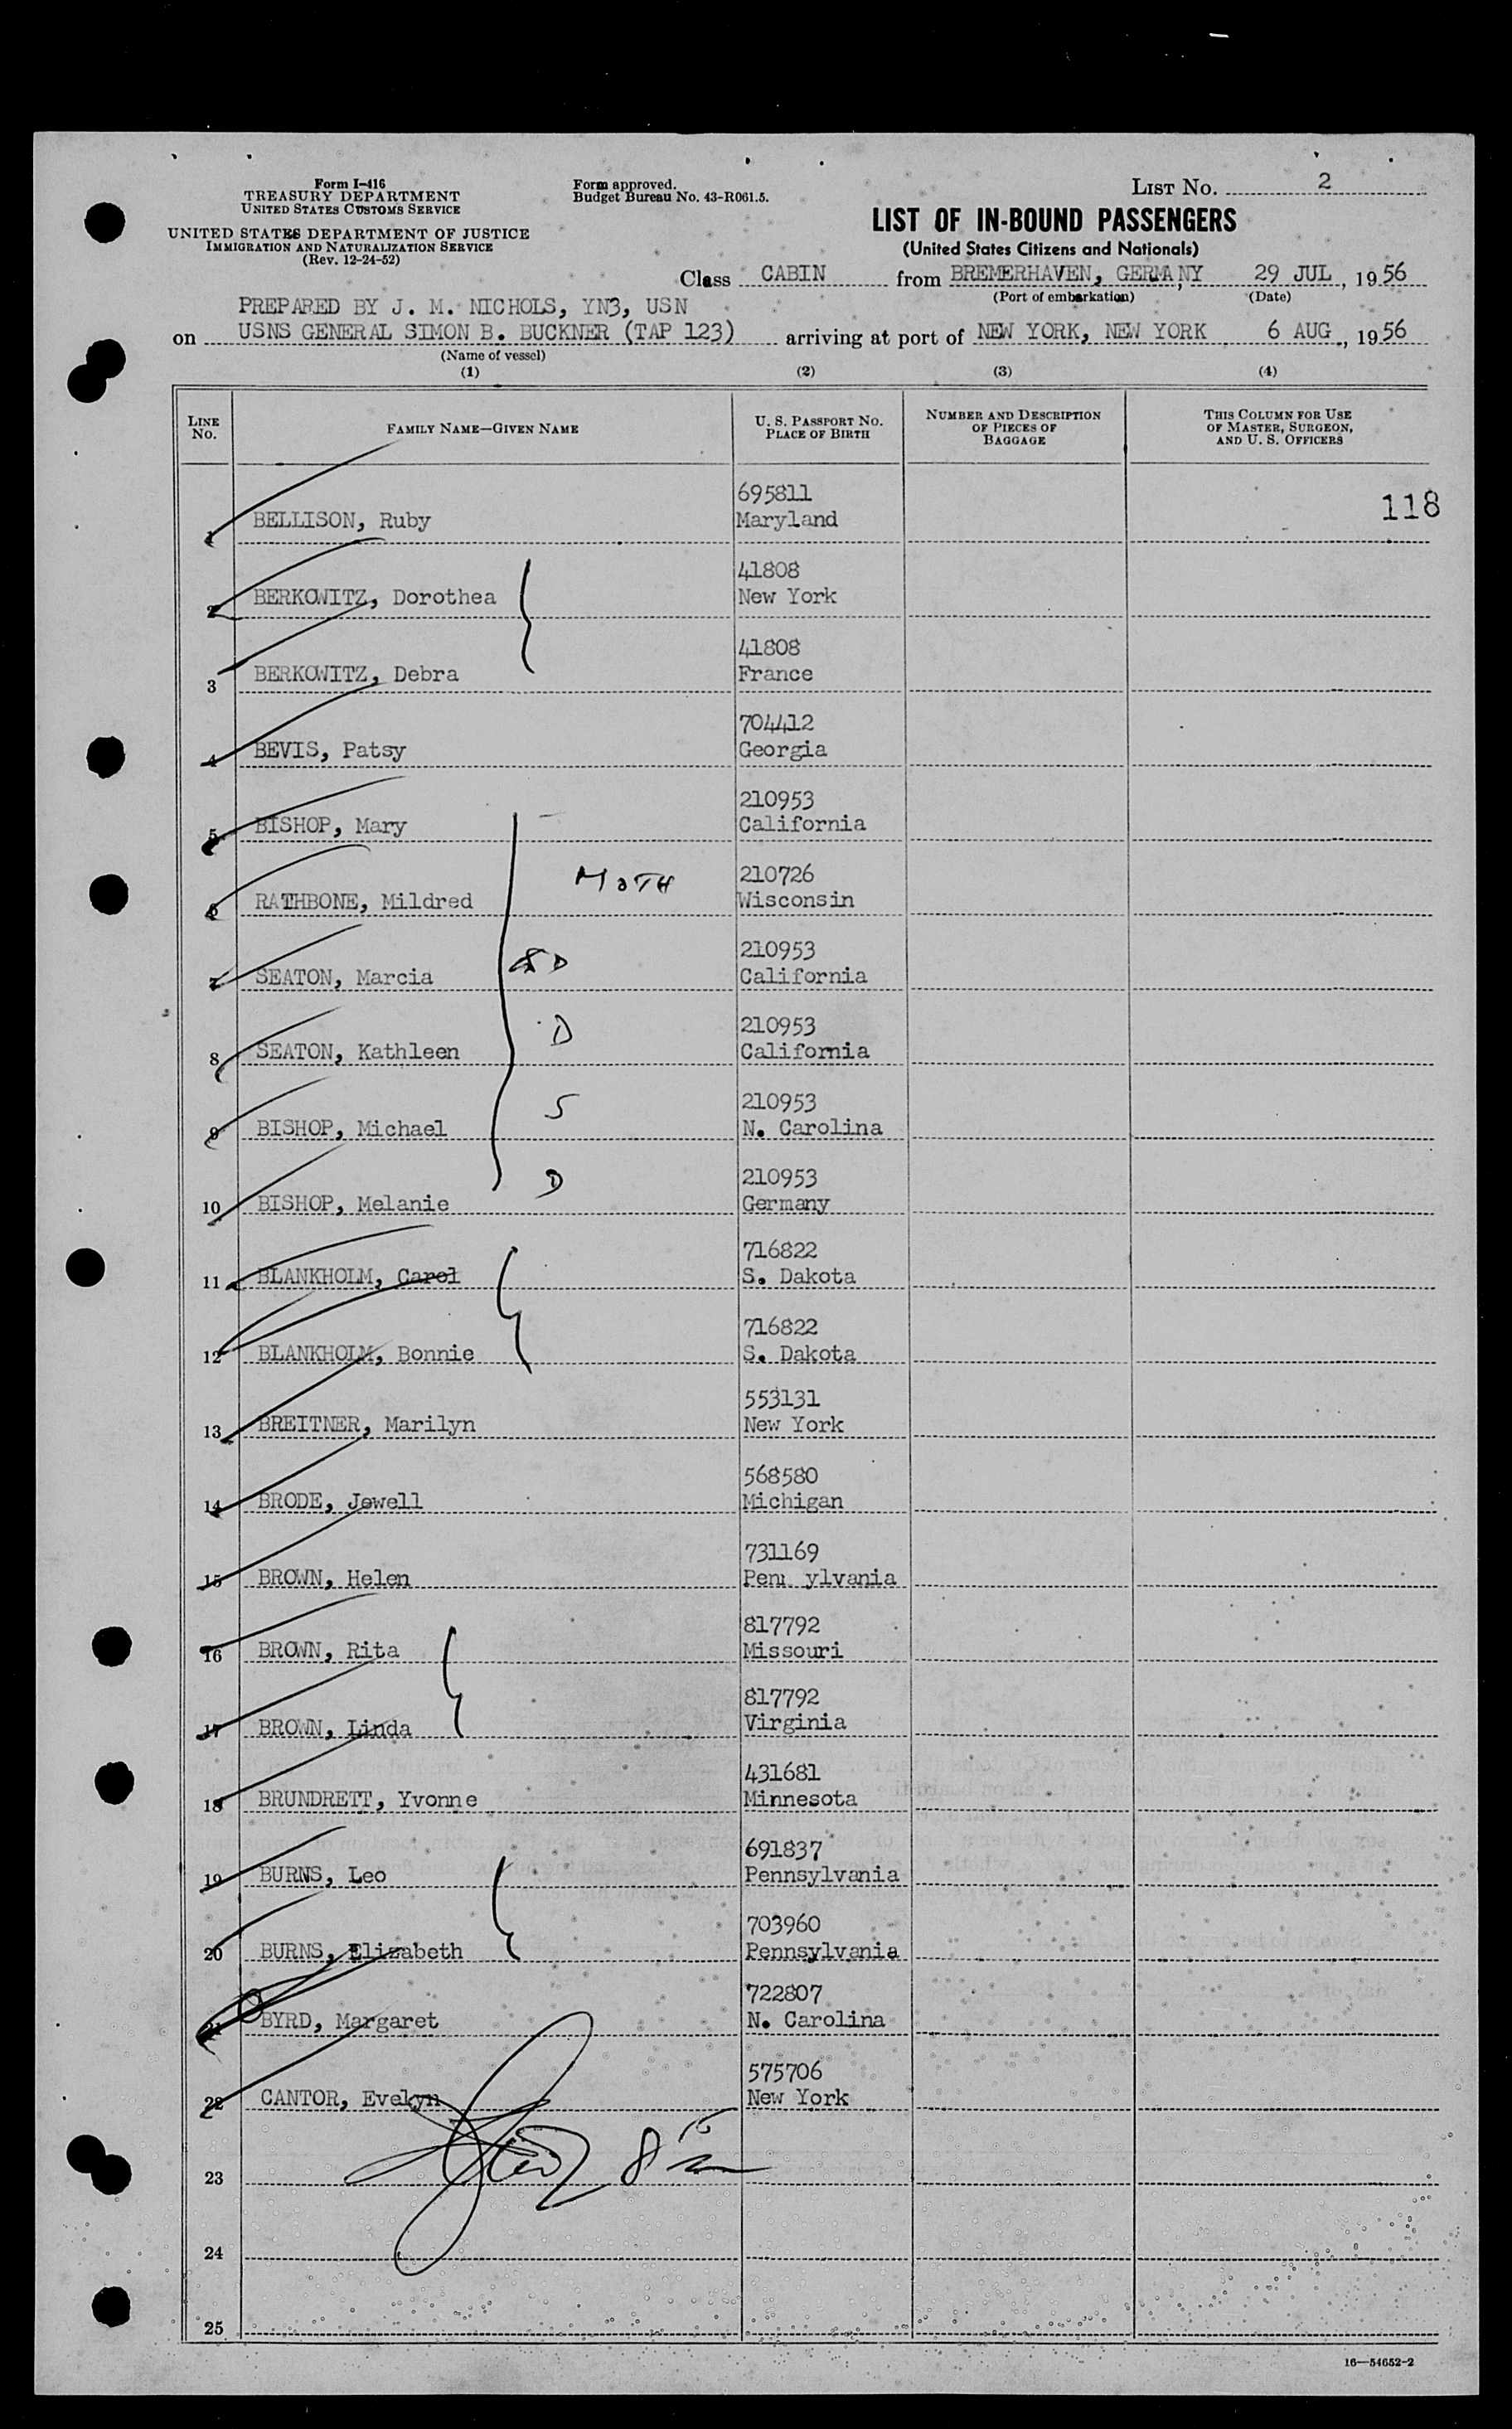 Form I-416
TREASURY DEPARTMENT
UNITED STATES CUSTOMS SERVICE
UNITED STATES DEPARTMENT OF JUSTICE
IMMIGRATION AND NATURALIZATION SERVICE
(Rev. 12-24-52)
Form approved.
Budget Bureau No. 43-R061.5.
LIST No. 2
LIST OF IN-BOUND PASSENGERS
(United States Citizens and Nationals)
Class CABIN from BREMERHAVEN, GERMANY, 29 JUL, 1956
(Port of embarkation) (Date)
PREPARED BY J. M. NICHOLS, YN3, USN
on USNS GENERAL SIMON B. BUCKNER (TAP 123) arriving at port of NEW YORK, NEW YORK 6 AUG, 1956
(Name of vessel)
(1) (2) (3) (4)
LINE No. FAMILY NAME—GIVEN NAME U. S. PASSPORT No. PLACE OF BIRTH NUMBER AND DESCRIPTION OF PIECES OF BAGGAGE THIS COLUMN FOR USE OF MASTER, SURGEON, AND U. S. OFFICERS
695811
1 BELLISON, Ruby Maryland 118
41808
2 BERKOWITZ, Dorothea New York
41808
3 BERKOWITZ, Debra France
704412
4 BEVIS, Patsy Georgia
210953
5 BISHOP, Mary California
210726
6 RATHBONE, Mildred MOTH Wisconsin
210953
7 SEATON, Marcia D California
210953
8 SEATON, Kathleen D California
210953
9 BISHOP, Michael S N. Carolina
210953
10 BISHOP, Melanie D Germany
716822
11 BLANKHOLM, Carol S. Dakota
716822
12 BLANKHOLM, Bonnie S. Dakota
553131
13 BREITNER, Marilyn New York
568580
14 BRODE, Jewell Michigan
731169
15 BROWN, Helen Penn ylvania
817792
16 BROWN, Rita Missouri
817792
17 BROWN, Linda Virginia
431681
18 BRUNDRETT, Yvonne Minnesota
691837
19 BURNS, Leo Pennsylvania
703960
20 BURNS, Elizabeth Pennsylvania
722807
21 BYRD, Margaret N. Carolina
575706
22 CANTOR, Evelyn New York
23
24
25
16—54652-2